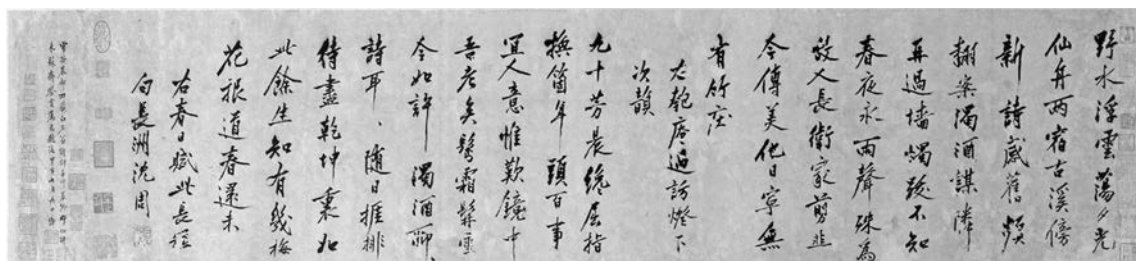 野水浮雲蕩夕光
仙舟兩宿古溪傍
新詩感舊頻
翻案濁酒謀隣
再過墻燭跋不知
春夜永雨聲殊為
故人長衛家剪韭
今傳美他日寧無
有竹莊
右匏庵過訪燈下
次韻
九十芳辰纔屈指
撫箇年頭百事
宜人意惟歎鏡中
吾老矣鬢霜髯雪
今如許濁酒聊
詩耳隨日捱排
待盡乾坤裏如
此餘生知有幾梅
花報道春還未
右春日賦此長短
句長洲沈周